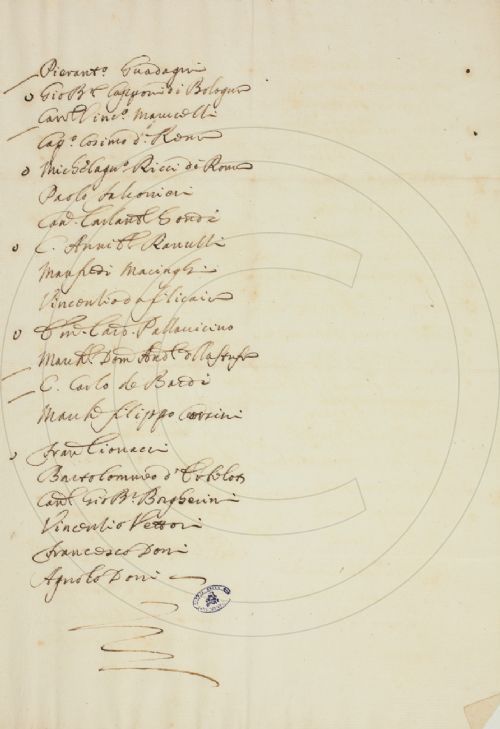 Pierant.o Guadagni
o Gio Bt.a Capponi di Bologna
Cav.l Vinc.o Marucelli
Cap.o Cosimo d'
o Michelagn.o Ricci di Roma
Paolo Falconieri
Cav. Carlant.o Gondi
o C. Annib.l Ranucci
Manfredi Macinghi
Vincentio da Filicaia
o Em. Card. Pallavicino
March.l Dom. And.l della Stufa
C. Carlo de Bardi
March.l Filippo Corsini
o Fran. Cionacci
Bartolommeo d'
Cav.l Gio Bt.a Borgherini
Vincentio Vettori
Francesco Doni
Agnolo Doni